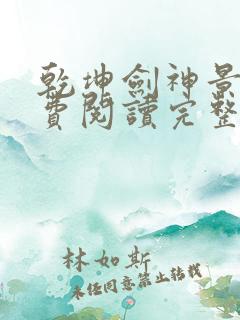 乾坤劍神景
費閱讀完整
林如斯
未经同意禁止转载